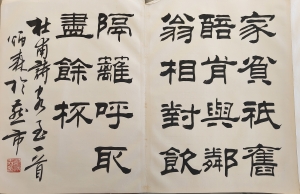 家貧祗舊
醅肯與鄰
翁相對飲
隔離呼取
盡餘杯
杜甫詩客至一首
炳森於燕市